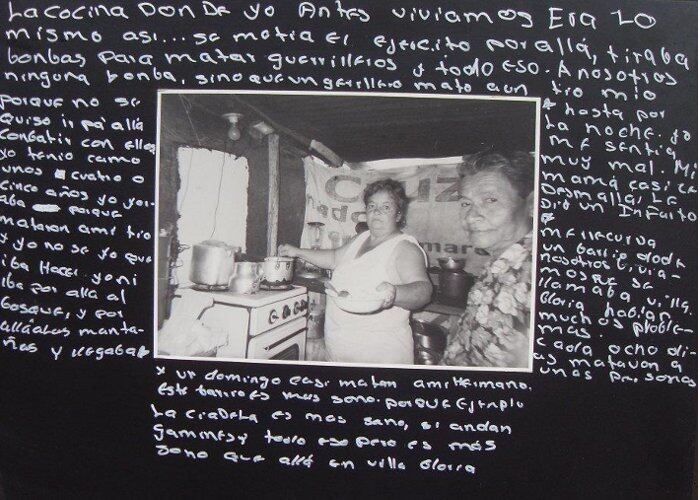 LA COCINA DONDE YO ANTES VIVIAMOS ERA LO
MISMO ASI... SE METIA EL EJERCITO POR ALLÁ, TIRABA
bonbas PARA MATAR GUERRILLEROS y todo ESO. A nosotros
ninguna bonba, sino que un gerrillero mato a un tio mio
porque no se
quiso ir pa'allá
conbatir con ellos
yo tenio como
unos cuatro o
cinco años yo yor-
aba porque
mataron ami tio
y yo no se yo que
iba Hacer. yo ni
iba por allá al
bosque, y por
alláalas monta-
ñas y llegaba
* hasta por
la noche. yo
me sentia
muy mal. Mi
mamá casi se
desmalla, le
dio un infarto
me recuerda
un barrio dode
nosotros vivia-
mos se
llamaba villa
Gloria habian
muchos proble-
mas.
cada ocho di-
as mataron a
unas persona
* un domingo casi matan ami Hermano.
Este barrio es mas sano. porque Ejemplo
La ciadela es mas sano, si andan
gamines y todo eso pero es más
sano que allá en villa Gloria
Cruz